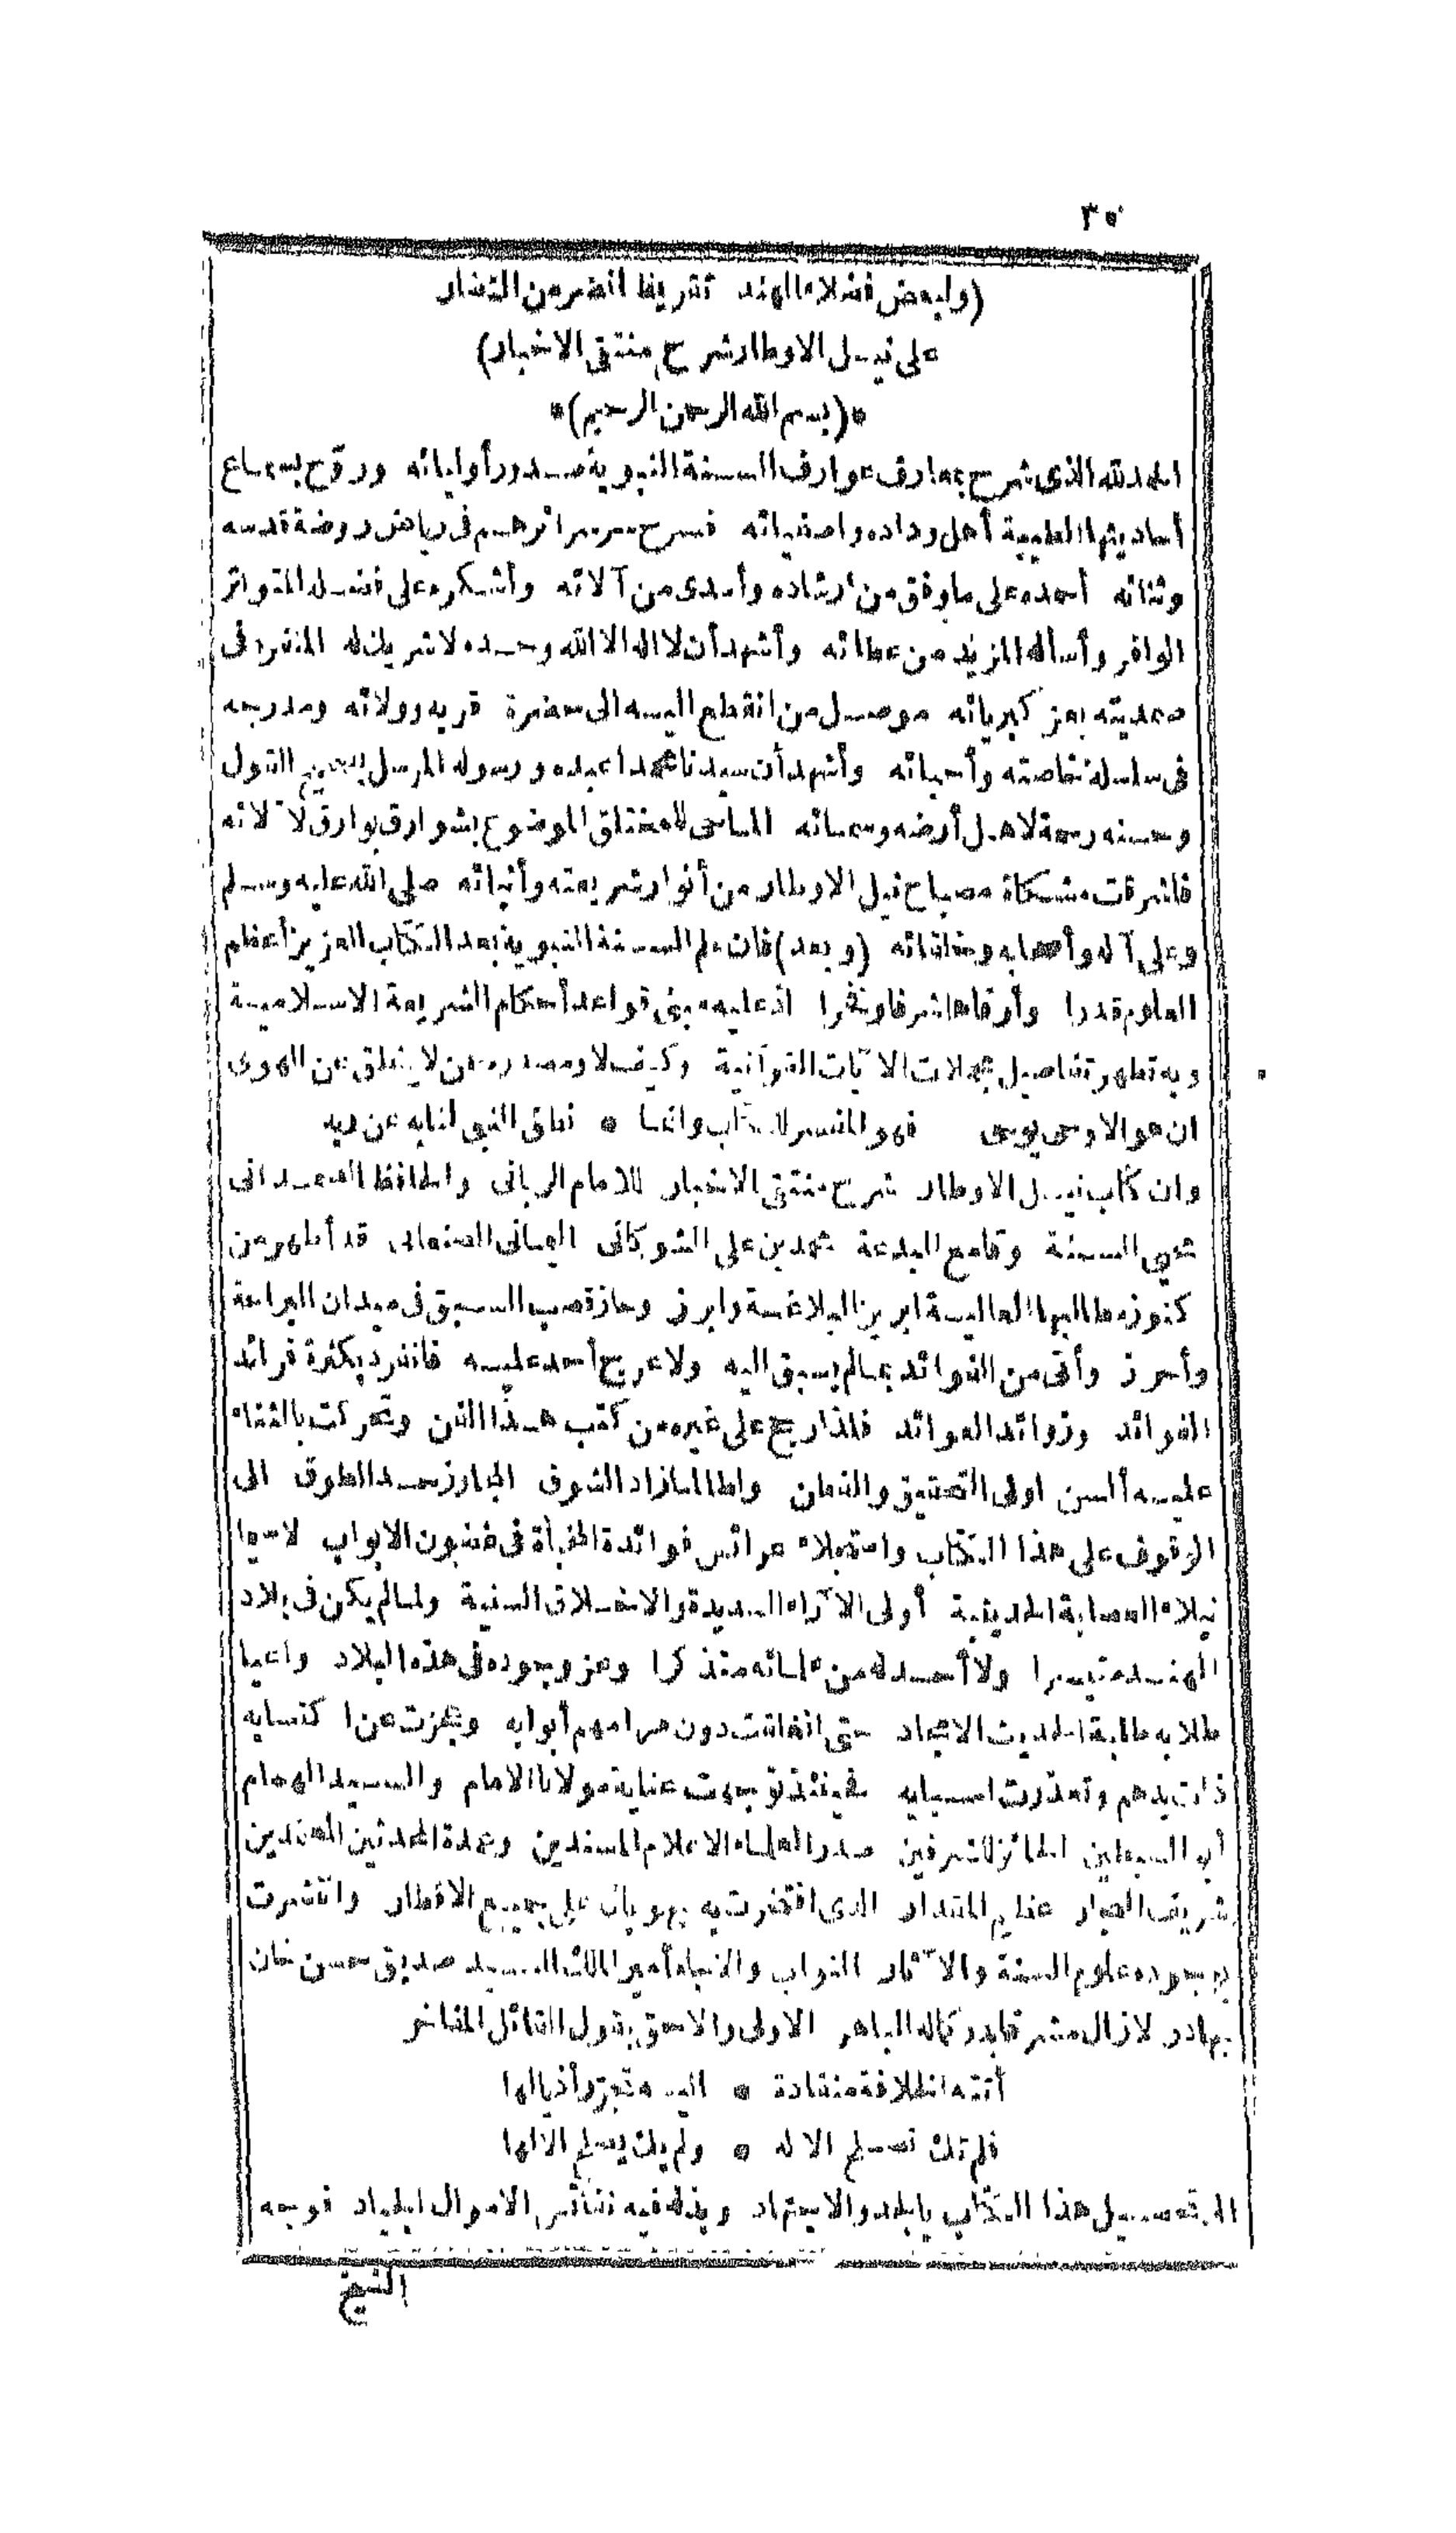 ٣٥٠
(ولبعض فضلاء الهند تقريظ انضر من النضار
على نيل الاوطار شرح منتقى الاخبار)
*(بسم الله الرحمن الرحيم)*
الحمد لله الذى شرح بمعارف عوارف السنة النبوية صدور أوليائه وروّح بسماع
أحاديثها الطيبة أهل وداده واصفيائه فسرح سرسرائرهم فى رياض روضة قدسه
وثنائه أحمده على ما وفق من ارشاده وأسدى من آلائه وأشكره على فضله المتواتر
الوافر وأسأله المزيد من عطائه وأشهد أن لا اله الا الله وحده لا شريك له المنفرد فى
صمديته بعز كبريائه موصل من انقطع اليه الى حضرة قربه وولائه ومدرجه
فى سلسلة خاصته وأحبائه وأشهد أن سيدنا محمدا عبده ورسوله المرسل بصحيح القول
وحسنه رحمة لاهل أرضه وسمائه الماحى للمختلق الموضوع بشوارق بوارق لآلائه
فاشرقت مشكاة مصباح نيل الاوطار من أنوار شريعته وأنبائه صلى الله عليه وسلم
وعلى آله وأصحابه وخلفائه (وبعد) فان علم السنة النبوية بعد الكتاب العزيز أعظم
العلوم قدرا وأرقاها شرفا وفخرا اذ عليه مبنى قواعد أحكام الشريعة الاسلامية
وبه تظهر تفاصيل مجملات الآيات القرآنية وكيف لا ومصدره عن لا ينطق عن الهوى
ان هو الا وحى يوحى فهو المفسر للكتاب وانما * نطق النبى لنا به عن ربه
وان كتاب نيل الاوطار شرح منتقى الاخبار للامام الربانى والحافظ الصمدانى
محيي السنة وقامع البدعة محمد بن على الشوكانى اليمانى الصنعانى قد أظهر من
كنوز مطالبها العالية ابريز البلاغة وابرز وحاز قصب السبق فى ميدان البراعة
وأحرز وأتى من الفوائد بما لم يسبق اليه ولا عرج أحد عليه فانفرد بكثرة فرائد
الفوائد وزوائد العوائد فلذا رجح على غيره من كتب هذا الفن وتحركت بالثناء
عليه ألسن اولى التحقيق والفطن ولطالما زاد الشوق المبارز حد الطوق الى
الوقوف على هذا الكتاب واستجلاء عرائس فوائده المخبأة فى غضون الابواب لا سيما
نبلاء العصابة الحديثية أولى الآراء السديدة والاخلاق السنية ولما لم يكن فى بلاد
الهند متيسرا ولا أحد له من علمائه متذكرا وعز وجوده فى هذه البلاد واعيا
طلابه طلبة الحديث الامجاد حتى انغلقت دون مرامهم أبوابه وعجزت عن اكتسابه
ذات يدهم وتعذرت اسبابه فحينئذ توجهت عناية مولانا الامام والسيد الهمام
أبى السبطين الحائز للشرفين صدر العلماء الاعلام المسندين وعمدة المحدثين المعتمدين
شريف النجار عظيم المقدار الذى افتخرت به بهوپال على جميع الاقطار وانتشرت
بوجوده علوم السنة والآثار النواب والاجاه أمير الملك السيد صديق حسن خان
بهادر لا زال مشرقا بدر كماله الباهر الاولى والاحق بقول القائل المفاخر
أتته الخلافة منقادة * اليه تجرّر أذيالها
فلم تك تصلح الا له * ولم يك يصلح الا لها
الى تحصيل هذا الكتاب بالجد والاجتهاد وبذل فيه نفائس الاموال الجياد فوجه
الشيخ